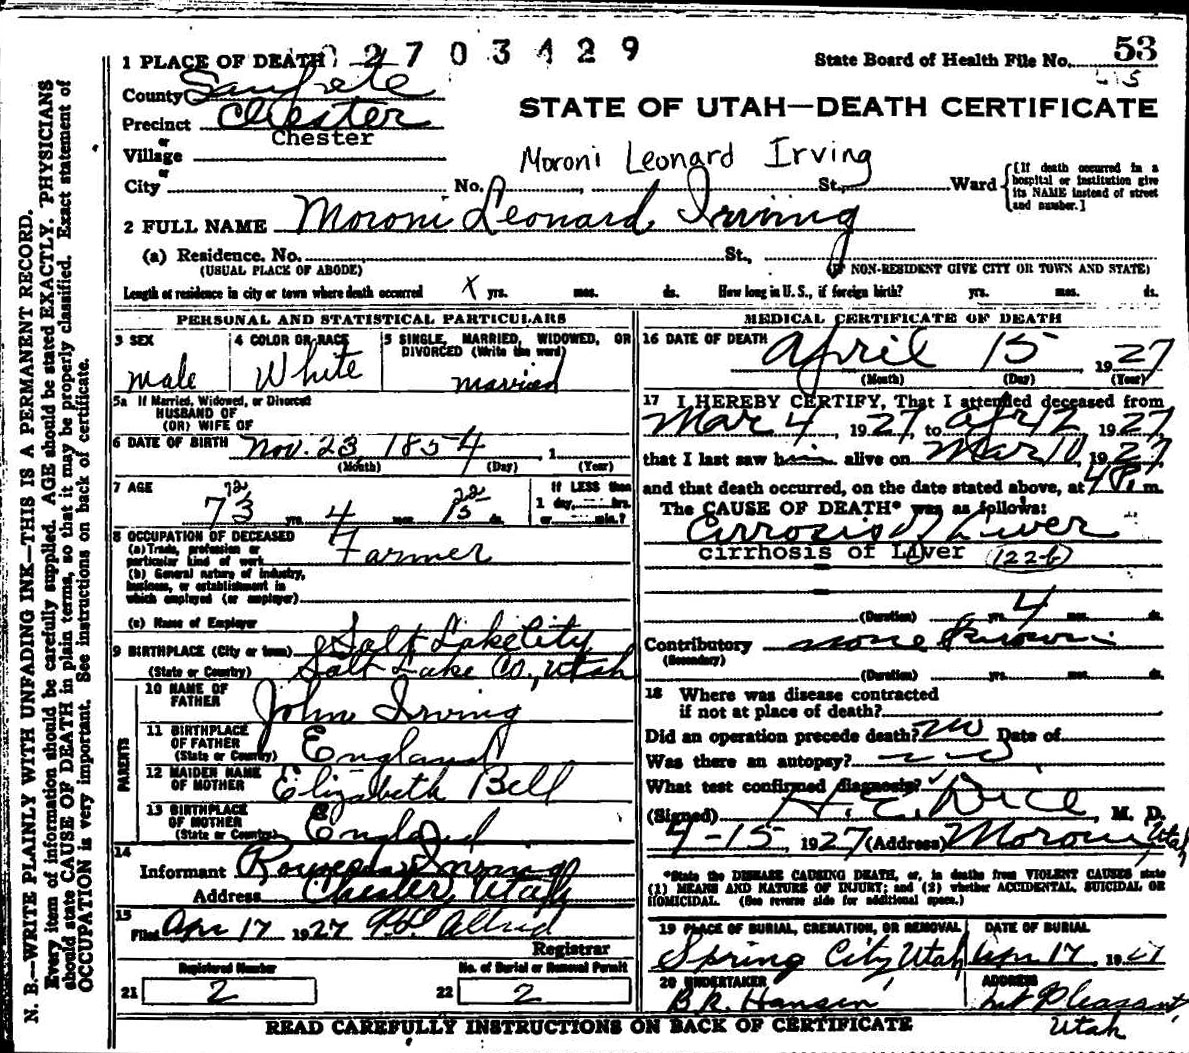 1 PLACE OF DEATH 2703429
State Board of Health File No. 53
County Sanpete
STATE OF UTAH—DEATH CERTIFICATE
Precinct Chester
or Chester
Village
or
Moroni Leonard Irving
City No. St., Ward [If death occurred in a hospital or institution give its NAME instead of street and number.]
2 FULL NAME Moroni Leonard Irving
(a) Residence. No. St.,
(USUAL PLACE OF ABODE) (IF NON-RESIDENT GIVE CITY OR TOWN AND STATE)
Length of residence in city or town where death occurred X yrs. mos. ds. How long in U. S., if foreign birth? yrs. mos. ds.
PERSONAL AND STATISTICAL PARTICULARS
3 SEX 4 COLOR OR RACE 5 SINGLE, MARRIED, WIDOWED, OR
DIVORCED (Write the word)
male White married
5a If Married, Widowed, or Divorced
HUSBAND OF
(OR) WIFE OF
6 DATE OF BIRTH Nov. 23, 1854, 1
(Month) (Day) (Year)
7 AGE If LESS than
72 22
73 yrs. 4 mos. ds. 1 day, hrs.
or min.?
8 OCCUPATION OF DECEASED
(a) Trade, profession or
particular kind of work Farmer
(b) General nature of industry,
business, or establishment in
which employed (or employer)
(c) Name of Employer
9 BIRTHPLACE (City or town) Salt Lake City
(State or Country) Salt Lake Co., Utah
PARENTS
10 NAME OF
FATHER John Irving
11 BIRTHPLACE
OF FATHER
(State or Country) England
12 MAIDEN NAME
OF MOTHER Elizabeth Bell
13 BIRTHPLACE
OF MOTHER
(State or Country) England
14
Informant Irving
Address Chester, Utah
15
Filed Apr 17 1927 Allred
Registrar
Registered Number No. of Burial or Removal Permit
21 2 22 2
MEDICAL CERTIFICATE OF DEATH
16 DATE OF DEATH April 15 1927
(Month) (Day) (Year)
17 I HEREBY CERTIFY, That I attended deceased from
Mar 4, 1927, to Apr 12 1927
that I last saw him alive on Mar 10, 1927
and that death occurred, on the date stated above, at 4 P. m.
The CAUSE OF DEATH* was as follows:
Cirrosis of Liver
cirrhosis of Liver (122b)
(Duration) yrs. 4 mos. ds.
Contributory none known
(Secondary)
(Duration) yrs. mos. ds.
18 Where was disease contracted
if not at place of death?
Did an operation precede death? no Date of
Was there an autopsy? no
What test confirmed diagnosis?
(Signed) H. E. Dice, M. D.
4-15, 1927 (Address) Moroni Utah
*State the DISEASE CAUSING DEATH, or, in deaths from VIOLENT CAUSES state
(1) MEANS AND NATURE OF INJURY; and (2) whether ACCIDENTAL, SUICIDAL OR
HOMICIDAL. (See reverse side for additional space.)
19 PLACE OF BURIAL, CREMATION, OR REMOVAL DATE OF BURIAL
Spring City, Utah Apr 17, 1927
20 UNDERTAKER ADDRESS
B.R. Hansen, Mt Pleasant,
Utah
READ CAREFULLY INSTRUCTIONS ON BACK OF CERTIFICATE
N. B.—WRITE PLAINLY WITH UNFADING INK—THIS IS A PERMANENT RECORD.
Every item of information should be carefully supplied. AGE should be stated EXACTLY. PHYSICIANS
should state CAUSE OF DEATH in plain terms, so that it may be properly classified. Exact statement of
OCCUPATION is very important. See instructions on back of certificate.